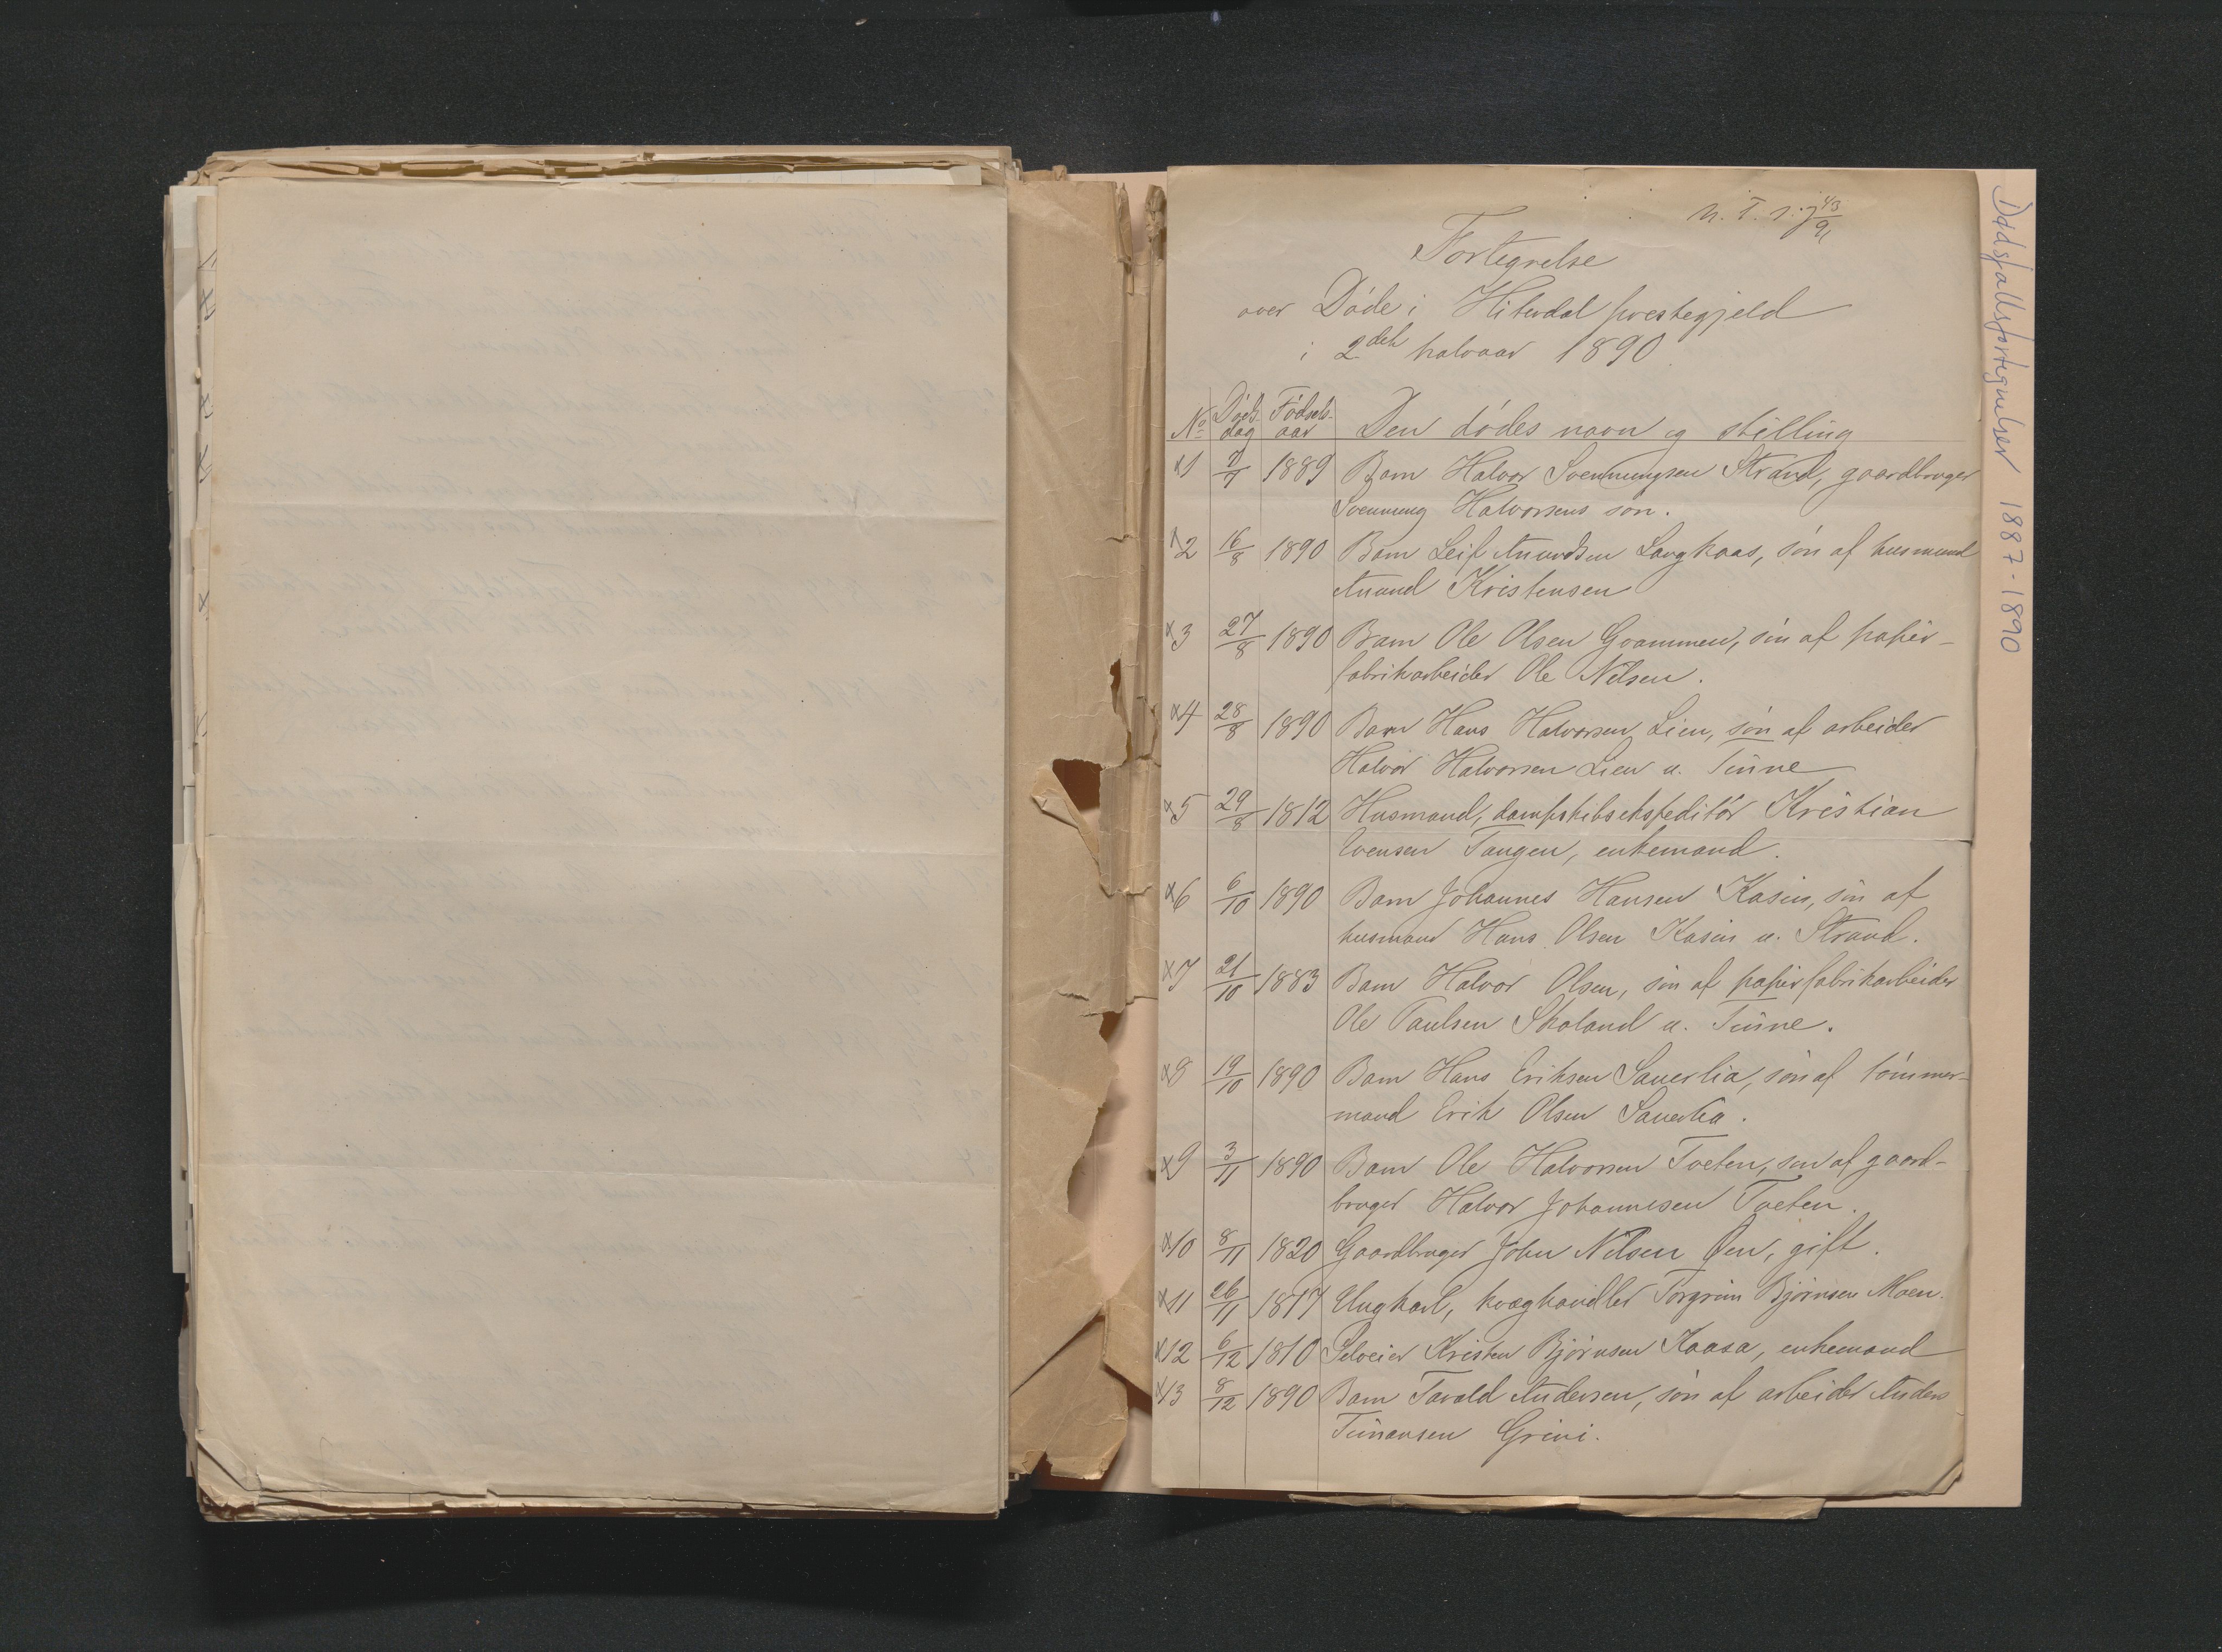 N. T. 1. j 43/91
Fortegnelse
over Döde i Hiterdal prestegjeld
i 2det halvaar 1890
No Döds- dag Födsels- aar Den dödes navn og stilling
x1 7/7 1889 Barn Halvor Svennungsen Strand, gaardbruger
Svennung Halvorsens sön.
x2 16/8 1890 Barn Leif Anundsen Langkaas, sön af husmand
Anund Kristensen
x3 27/8 1890 Barn Ole Olsen Grammen, sön af papir-
fabrikarbeider Ole Nilsen.
x4 28/8 1890 Barn Hans Halvorsen Lien, sön af arbeider
Halvor Halvorsen Lien u. Tinne
x5 29/8 1812 Husmand, dampskibsekspeditör Kristian
Evensen Tangen, enkemand.
x6 6/10 1890 Barn Johannes Hansen Kasin, sön af
husmand Hans Olsen Kasin u. Strand.
x7 21/10 1883 Barn Halvor Olsen, sön af papirfabrikarbeider
Ole Paulsen Skoland u. Tinne.
x8 19/10 1890 Barn Hans Eriksen Sauerlia, sön af tömmer-
mand Erik Olsen Sauerlia.
x9 3/11 1890 Barn Ole Halvorsen Tveten, sön af gaard-
bruger Halvor Johannesen Tveten.
x10 8/11 1820 Gaardbruger John Nilsen Öen, gift.
x11 26/11 1817 Ungkarl, kvæghandler Torgrim Björnsen Moen.
x12 6/12 1810 Selveier Kristen Björnsen Kaasa, enkemand
x13 8/12 1890 Barn Tarald Andersen, sön af arbeider Anders
Grini.
Dødsfallsfortegnelser 1887-1890